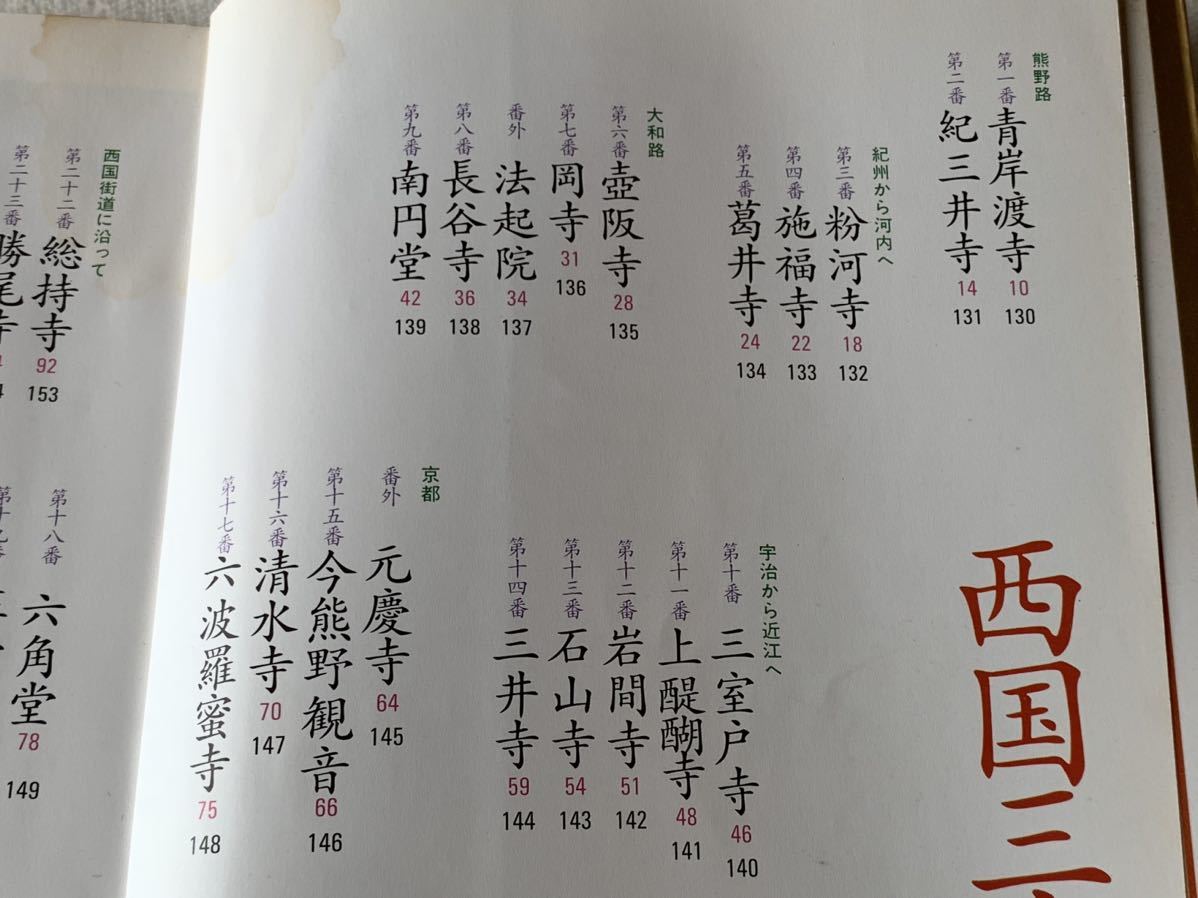 西国三
熊野路
第一番 青岸渡寺 10 130
第二番 紀三井寺 14 131
紀州から河内へ
第三番 粉河寺 18 132
第四番 施福寺 22 133
第五番 葛井寺 24 134
大和路
第六番 壺阪寺 28 135
第七番 岡寺 31 136
番外 法起院 34 137
第八番 長谷寺 36 138
第九番 南円堂 42 139
宇治から近江へ
第十番 三室戸寺 46 140
第十一番 上醍醐寺 48 141
第十二番 岩間寺 51 142
第十三番 石山寺 54 143
第十四番 三井寺 59 144
京都
番外 元慶寺 64 145
第十五番 今熊野観音 66 146
第十六番 清水寺 70 147
第十七番 六波羅蜜寺 75 148
西国街道に沿って
第二十二番 総持寺 92 153
第二十三番 勝尾寺
第十八番 六角堂 78 149
第十九番